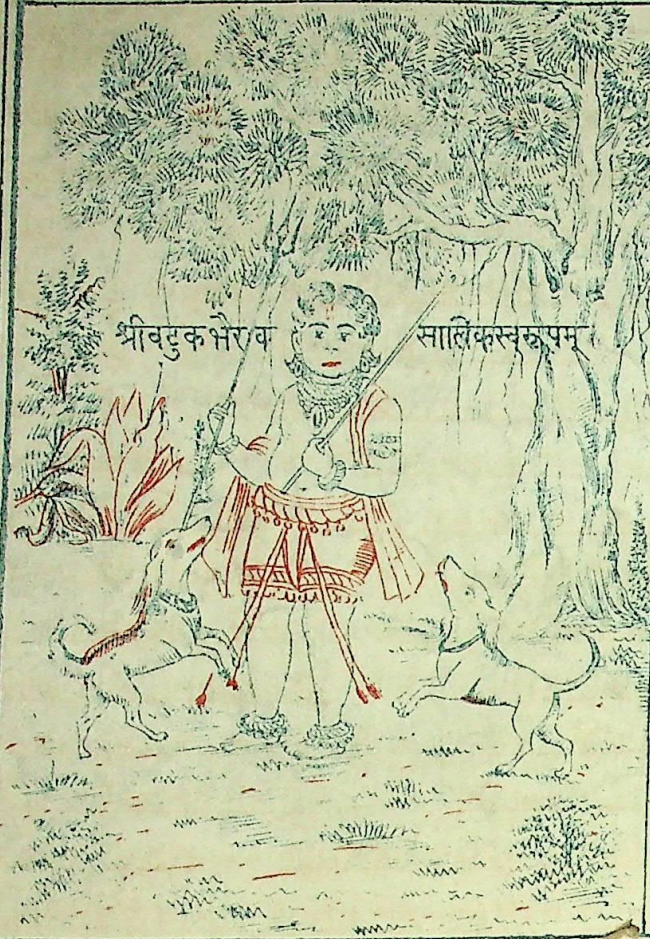 श्रीवटुकभैरव सात्विकस्वरूपम्